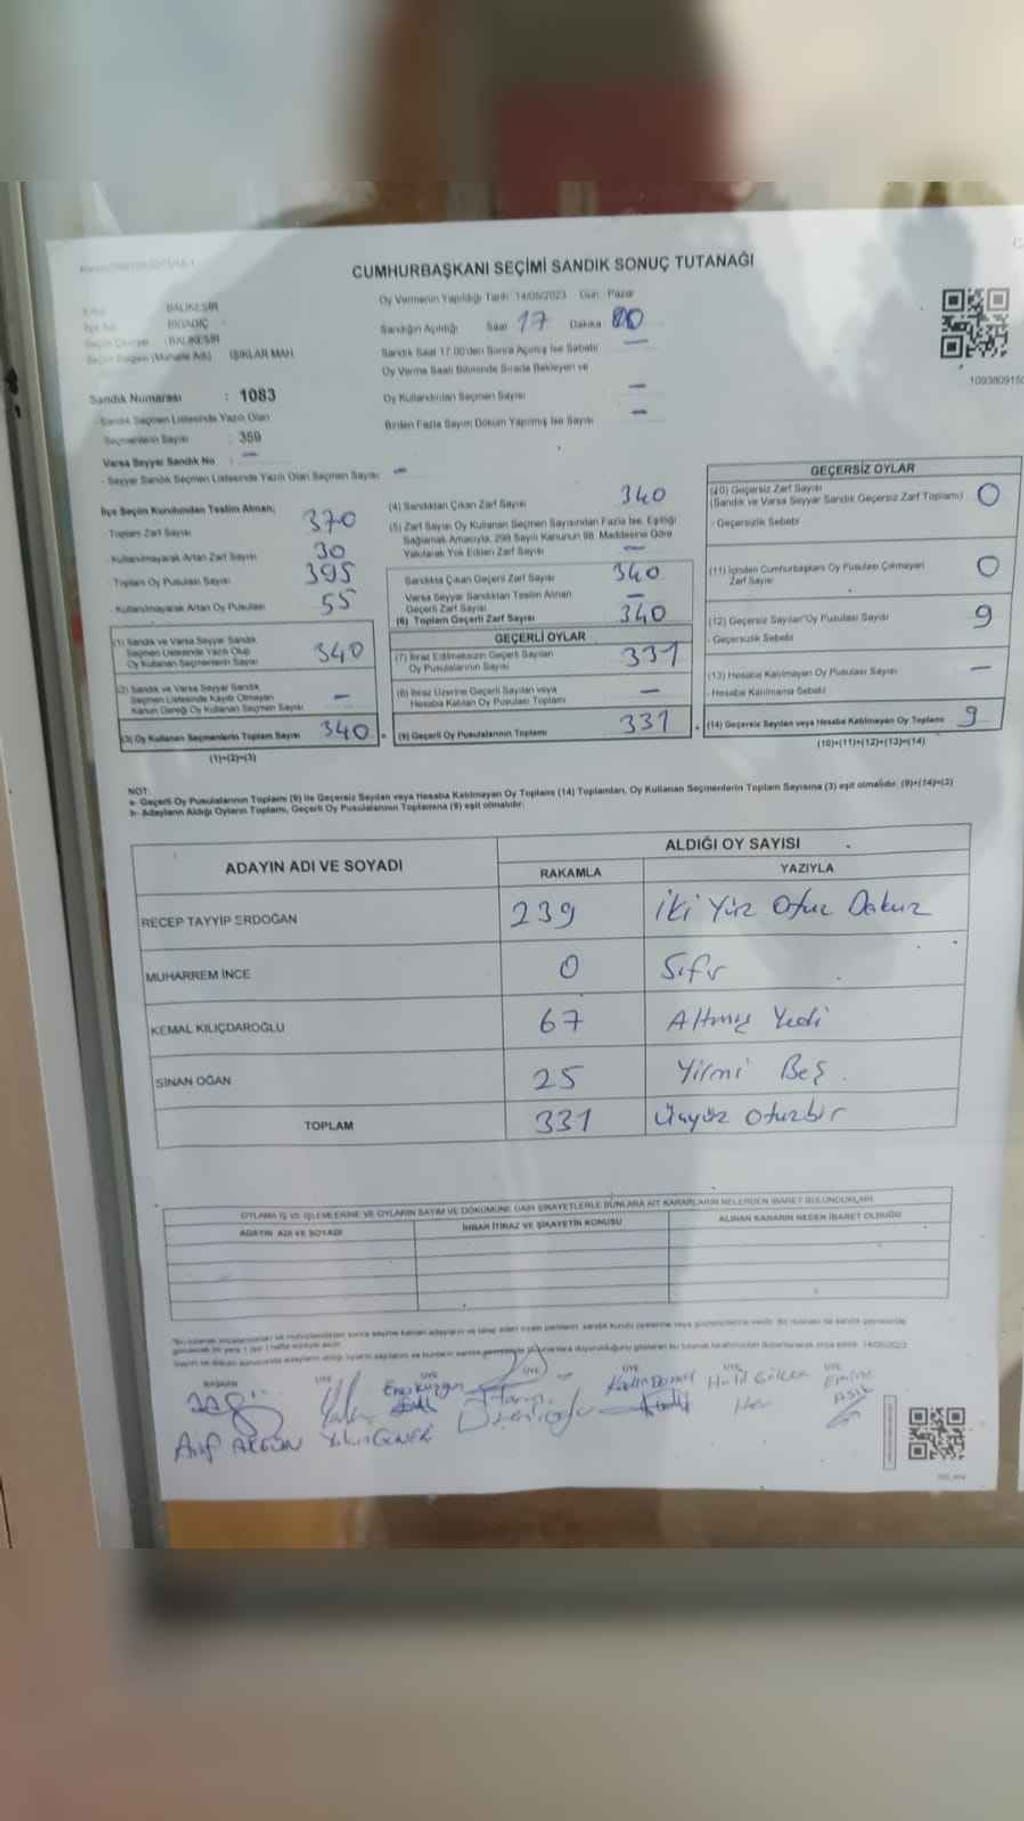 CUMHURBAŞKANI SEÇİMİ SANDIK SONUÇ TUTANAĞI
BALIKESİR
BİGADİÇ
BALIKESİR
Seçim Bölgesi (Mahalle Adı) IŞIKLAR MAH.
Oy Vermenin Yapıldığı Tarih 14/05/2023 Gün Pazar
Sandığın Açıldığı Saat 17 Dakika 00
Sandık Saat 17.00'den Sonra Açılmış İse Sebebi —
Oy Verme Saati Bitiminde Sırada Bekleyen ve
Oy Kullandırılan Seçmen Sayısı —
Birden Fazla Sayım Döküm Yapılmış İse Sayısı —
Sandık Numarası : 1083
Sandık Seçmen Listesinde Yazılı Olan
Seçmenlerin Sayısı : 359
Varsa Seyyar Sandık No : —
- Seyyar Sandık Seçmen Listesinde Yazılı Olan Seçmen Sayısı —
İlçe Seçim Kurulundan Teslim Alınan;
Toplam Zarf Sayısı 370
Kullanılmayarak Artan Zarf Sayısı 30
Toplam Oy Pusulası Sayısı 395
Kullanılmayarak Artan Oy Pusulası 55
(1) Sandık ve Varsa Seyyar Sandık
Seçmen Listesinde Yazılı Olup
Oy Kullanan Seçmenlerin Sayısı 340
(2) Sandık ve Varsa Seyyar Sandık
Seçmen Listesinde Kayıtlı Olmayan
Kanun Gereği Oy Kullanan Seçmen Sayısı —
(3) Oy Kullanan Seçmenlerin Toplam Sayısı 340
(1)+(2)=(3)
(4) Sandıktan Çıkan Zarf Sayısı 340
(5) Zarf Sayısı Oy Kullanan Seçmen Sayısından Fazla İse, Eşitliği
Sağlamak Amacıyla, 298 Sayılı Kanunun 98. Maddesine Göre
Yakılarak Yok Edilen Zarf Sayısı —
Sandıkta Çıkan Geçerli Zarf Sayısı 340
Varsa Seyyar Sandıktan Teslim Alınan
Geçerli Zarf Sayısı —
(6) Toplam Geçerli Zarf Sayısı 340
GEÇERLİ OYLAR
(7) İtiraz Edilmeksizin Geçerli Sayılan
Oy Pusulalarının Sayısı 331
(8) İtiraz Üzerine Geçerli Sayılan veya
Hesaba Katılan Oy Pusulası Toplamı —
(9) Geçerli Oy Pusulalarının Toplamı 331
GEÇERSİZ OYLAR
(10) Geçersiz Zarf Sayısı
(Sandık ve Varsa Seyyar Sandık Geçersiz Zarf Toplamı) 0
- Geçersizlik Sebebi
(11) İçinden Cumhurbaşkanı Oy Pusulası Çıkmayan
Zarf Sayısı 0
(12) Geçersiz Sayılan Oy Pusulası Sayısı 9
- Geçersizlik Sebebi
(13) Hesaba Katılmayan Oy Pusulası Sayısı —
- Hesaba Katılmama Sebebi
(14) Geçersiz Sayılan veya Hesaba Katılmayan Oy Toplamı 9
(10)+(11)+(12)+(13)=(14)
NOT:
a- Geçerli Oy Pusulalarının Toplamı (9) ile Geçersiz Sayılan veya Hesaba Katılmayan Oy Toplamı (14) Toplamları, Oy Kullanan Seçmenlerin Toplam Sayısına (3) eşit olmalıdır. (9)+(14)=(3)
b- Adayların Aldığı Oyların Toplamı, Geçerli Oy Pusulalarının Toplamına (9) eşit olmalıdır.
ADAYIN ADI VE SOYADI
ALDIĞI OY SAYISI
RAKAMLA YAZIYLA
RECEP TAYYİP ERDOĞAN 239 İki Yüz Otuz Dokuz
MUHARREM İNCE 0 Sıfır
KEMAL KILIÇDAROĞLU 67 Altmış Yedi
SİNAN OĞAN 25 Yirmi Beş
TOPLAM 331 Üçyüz otuzbir
ADAYIN ADI VE SOYADI
İHBAR İTİRAZ VE ŞİKAYETİN KONUSU
ALINAN KARARIN NEDEN İBARET OLDUĞU
BAŞKAN ÜYE ÜYE ÜYE ÜYE ÜYE ÜYE
Halil Gökçen
Emine
AŞIK
Arif AKGÜN